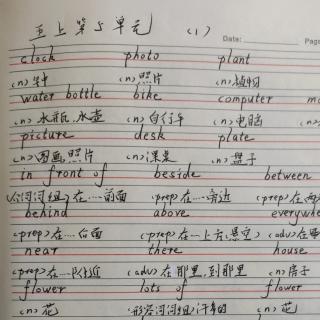 五上第5单元 (1)
Date: Page
clock photo plant
(n)钟 (n)照片 (n)植物
water bottle bike computer
(n)水瓶,水壶 (n)自行车 (n)电脑
picture desk plate
(n)图画,照片 (n)课桌 (n)盘子
in front of beside between
(介词词组)在…前面 (prep)在…旁边 (prep)在
behind above everywhe
(prep)在…后面 (prep)在…上方(悬空) (adv)在
near there house
(prep)在…附近 (adv)在那里,到那里 (n)房子
flower lots of flower
(n)花 (n)花